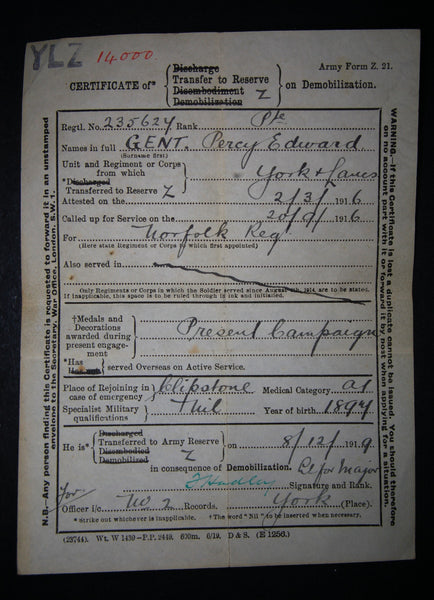 YLZ 14000
Army Form Z. 21.
Discharge
Transfer to Reserve
Disembodiment Z
Demobilization
CERTIFICATE of* on Demobilization.
Regtl. No. 235624 Rank Pte
Names in full GENT. Percy Edward
(Surname first)
Unit and Regiment or Corps
from which York & Lancs
*Discharged
Transferred to Reserve Z
Attested on the 2/3/ 1916
Called up for Service on the 1916
For Norfolk Reg
(Here state Regiment or Corps to which first appointed)
Also served in
Only Regiments or Corps in which the Soldier served since August 4th, 1914, are to be stated.
If inapplicable, this space is to be ruled through in ink and initialled.
†Medals and
Decorations
awarded during
present engage-
ment
Present Campaign
*Has
Has not
served Overseas on Active Service.
Place of Rejoining in Clipstone Medical Category A1
case of emergency
Specialist Military Nil Year of birth 1894
qualifications
He is*
Discharged
Transferred to Army Reserve Z
Disembodied
Demobilized
on 8/12/ 1919
in consequence of Demobilization.
Major
Signature and Rank.
for
Officer i/c No 2 Records. York (Place).
* Strike out whichever is inapplicable. † The word "Nil" to be inserted when necessary.
(23744). Wt. W 1439—P.P. 2449. 600m. 6/19. D & S. (E 1256.)
N.B.—Any person finding this Certificate is requested to forward it in an unstamped
envelope to the Secretary, War Office, London, S.W. 1.
WARNING.—If this Certificate is lost a duplicate cannot be issued. You should therefore
on no account part with it or forward it by post when applying for a situation.